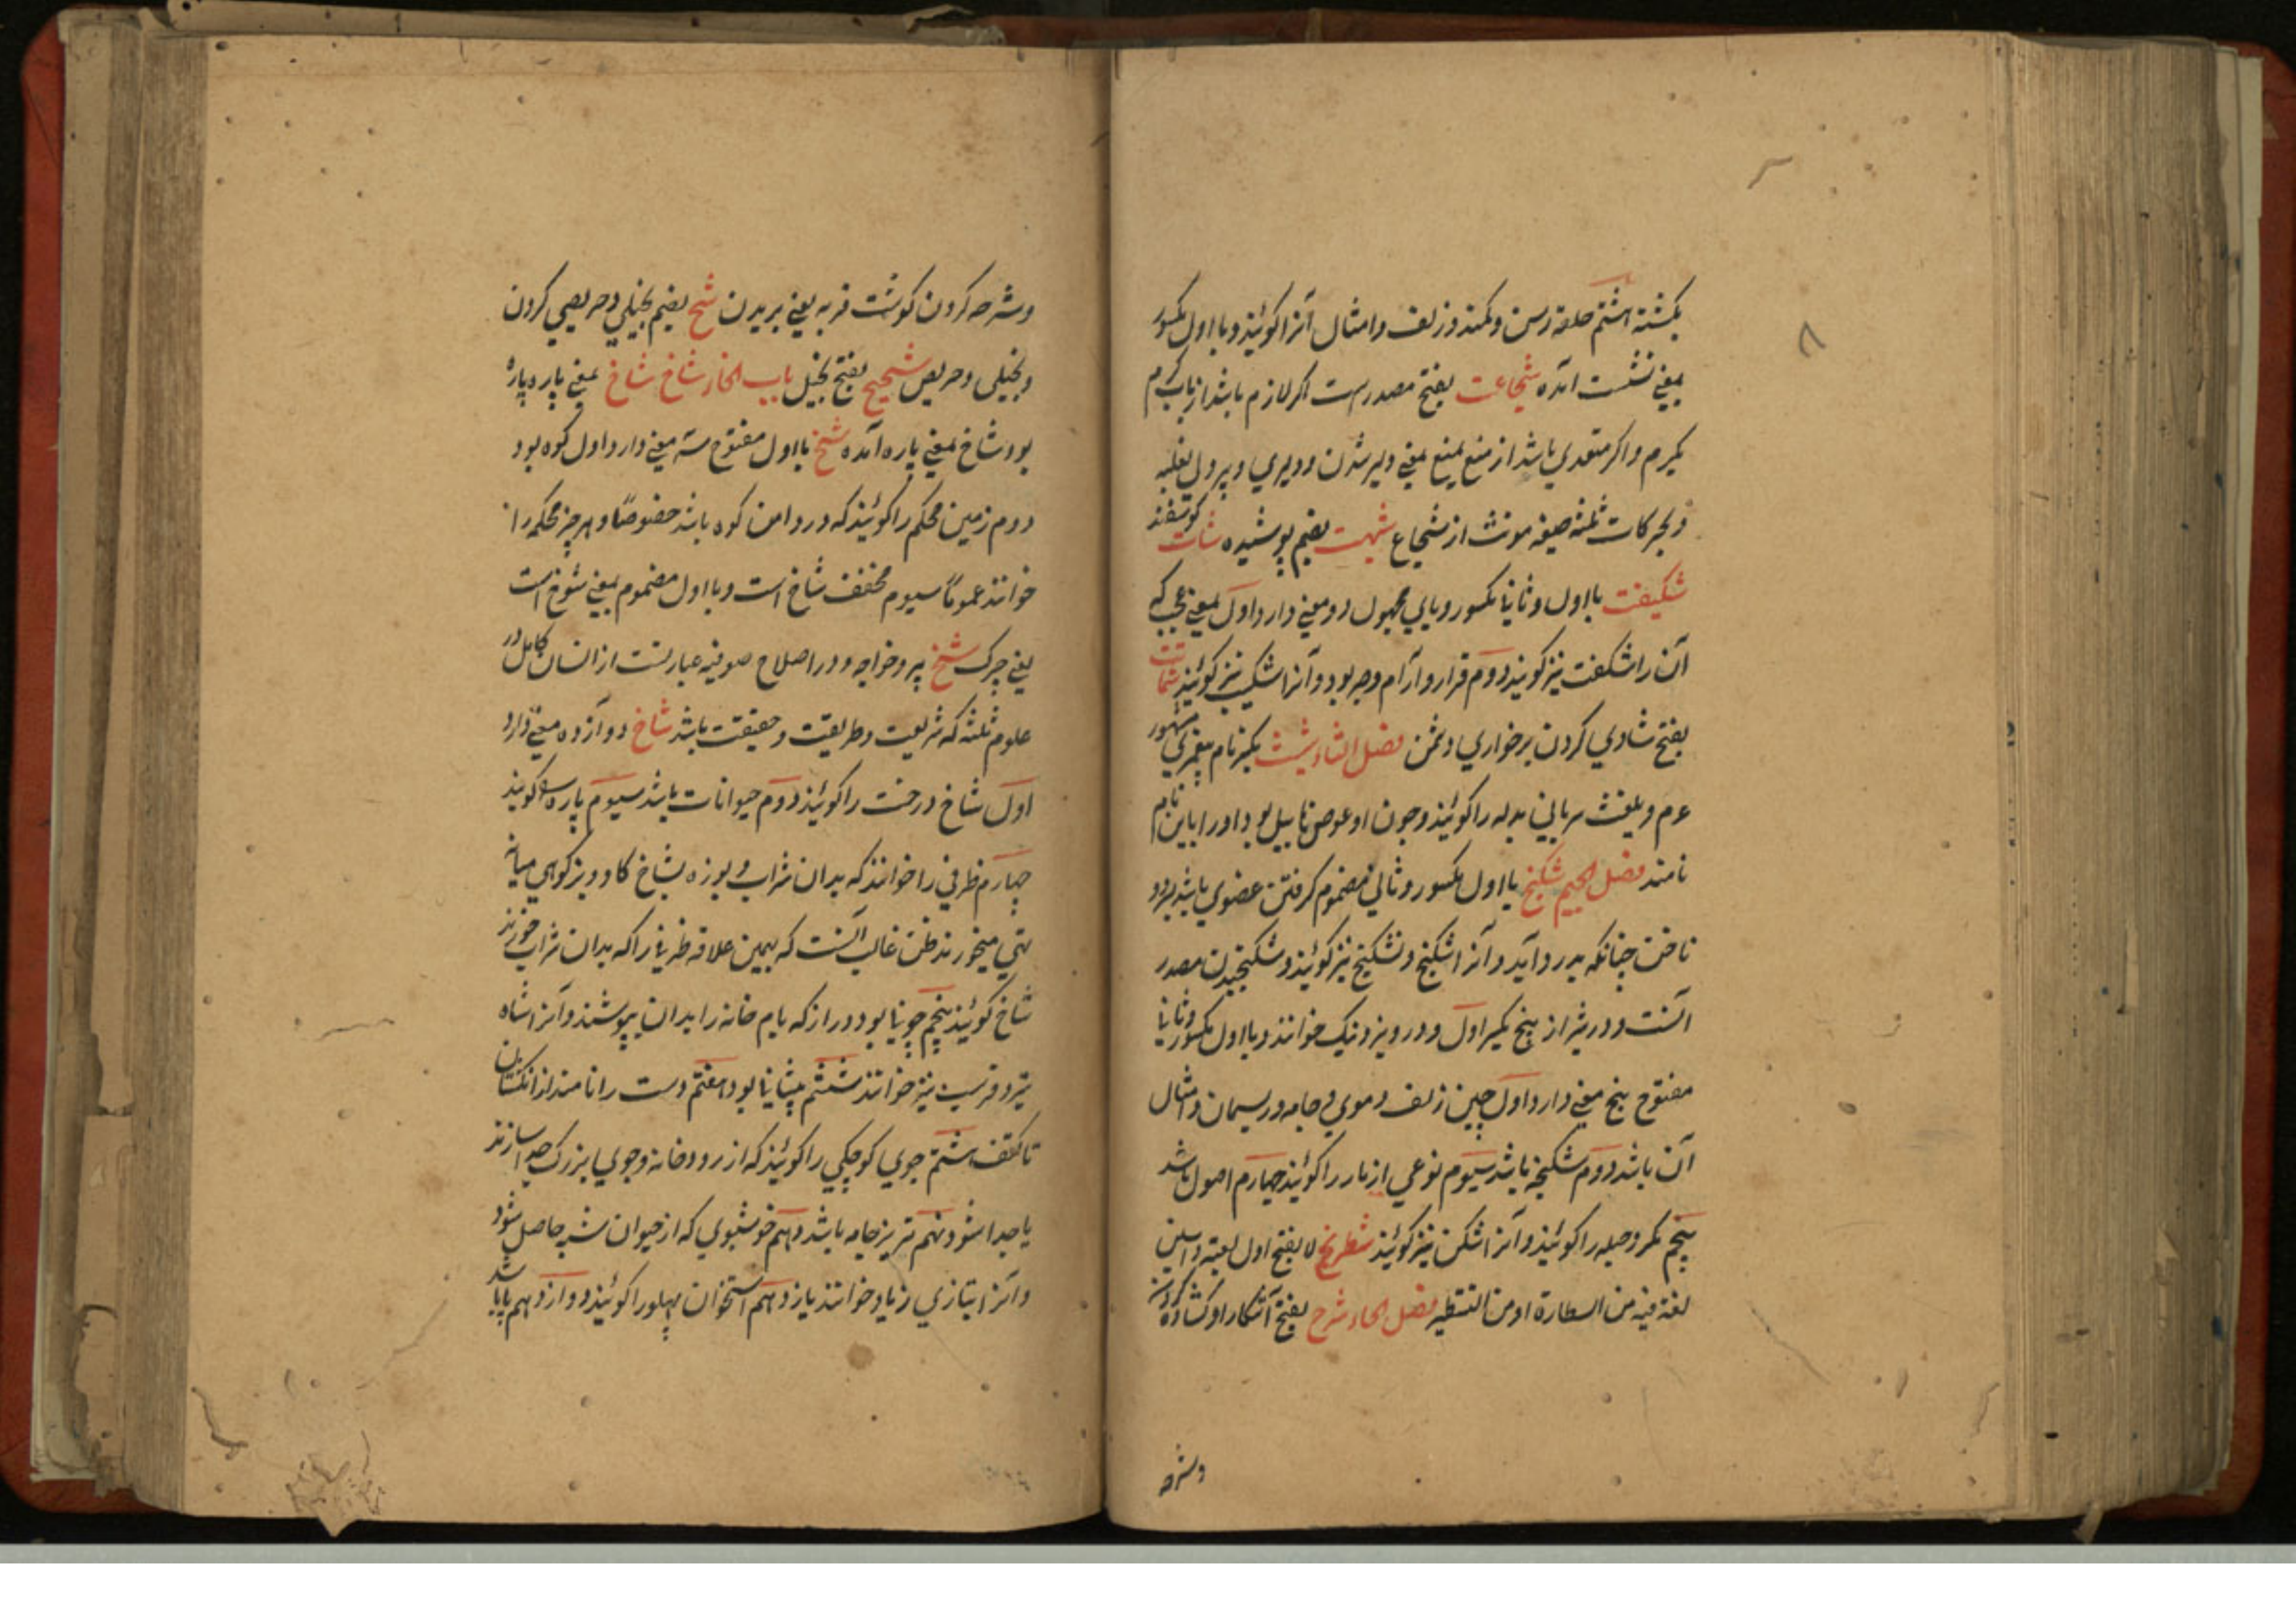 بکشته اشتم حلقه رسن و کمند و زلف و امثال آنرا کوئیند و با اول مکسور
بمعنی نشست آمده شجاعت بفتح مصدرست اکر لازم باشد از باب کرم
یکرم و اکر متعدی باشد از منع یمنع بمعنی دلیر شدن و دلیری و پردل بغلبه
و بحرکات ثلثه صیغه مونث از شجاع شبهت بضم پوشیده شات کوسفند
شکیفت با اول و ثانیا مکسور و یای مجهول دو معنی دارد اول بمعنی عجب که
آن را شکفت نیز کویند دوم قرار و آرام و صبر بود و آنرا شکیب نیز کوئیند شماتت
بفتح شادی کردن بر خواری دشمن فصل الثاء شیث بکسر نام پیغمبری مشهور
عم و بلغت سریانی بدله را کوئیند و چون او عوض هابیل بود او را باین نام
نامند فصل الجیم شکنج با اول مکسور و ثانی مضموم کرفتن عضوی باشد بدو
ناخن چنانکه بدرد آید و آنرا اشکنج و نشکنج نیز کوئیند و شکنجیدن مصدر
آنست و در شیراز پنج بکسر اول و در ونیز دنیک خوانند و با اول مکسور و ثانیا
مفتوح پنج معنی دارد اول چین زلف و موی و جامه و ریسمان و امثال
آن باشد دوم شکنجه باشد سیوم نوعی از مار را کوئیند چهارم اصول باشد
پنجم مکر و حیله را کوئیند و آنرا اشکن نیز کوئیند شطرنج لا بفتح اول لعبة والسین
لغة فیه من الشطارة او من التشطیر فصل الحاء شرح بفتح آشکار او کشاده کردن
وشرحه
وشرحه کردن کوشت فربه یعنی بریدن شح بضم بخیلی و حریصی کردن
و بخیلی و حریص شحیح بفتح بخیل باب الخاء شاخ شاخ بمعنی پاره پاره
بود شاخ بمعنی پاره آمده شخ با اول مفتوح سه معنی دارد اول کوه بود
دوم زمین محکم را کوئیند که در دامن کوه باشد خصوصًا و هر چیز محکم را
خوانند عمومًا سیوم مخفف شاخ است و با اول مضموم بمعنی شوخ است
یعنی چرک شیخ پیر و خواجه و در اصلاح صوفیه عبارتست از انسان کامل در
علوم ثلثه که شریعت و طریقت و حقیقت باشد شاخ دوازده معنی دارد
اول شاخ درخت را کوئیند دوم حیوانات باشد سیوم پاره را کویند
چهارم ظرفی را خوانند که بدان شراب و بوزه بشاخ کاو و بز کوهی میان
تهی میخورند ظن غالب آنست که بهمین علاقه ظرفی را که بدان شراب خورند
شاخ کوئیند پنجم چوبها بود دراز که بام خانه را بدان بپوشند و آنرا شاه
تیر و فرسب نیز خوانند ششم پیشانی بود هفتم دست را نامند از انکشتان
تا کتف هشتم جوی کوچکی را کوئیند که از رودخانه و جوی بزرک جدا سازند
یا جدا شود نهم تریز جامه باشد دهم خوشبوی که از حیوان شبیه حاصل شود
و آنرا بتازی زباد خوانند یازدهم استخوان پهلو را کوئیند دوازدهم پا باشد